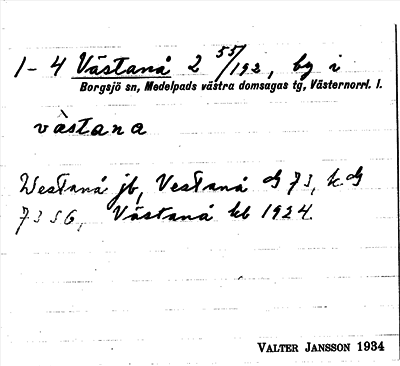 1-4 Västanå 2 55/192, by i
Borgsjö sn, Medelpads västra domsagas tg, Västernorrl. l.
vàstana
Westanå jb, Vestanå dj 73, k dj
73 SG, Västanå kb 1924.
VALTER JANSSON 1934